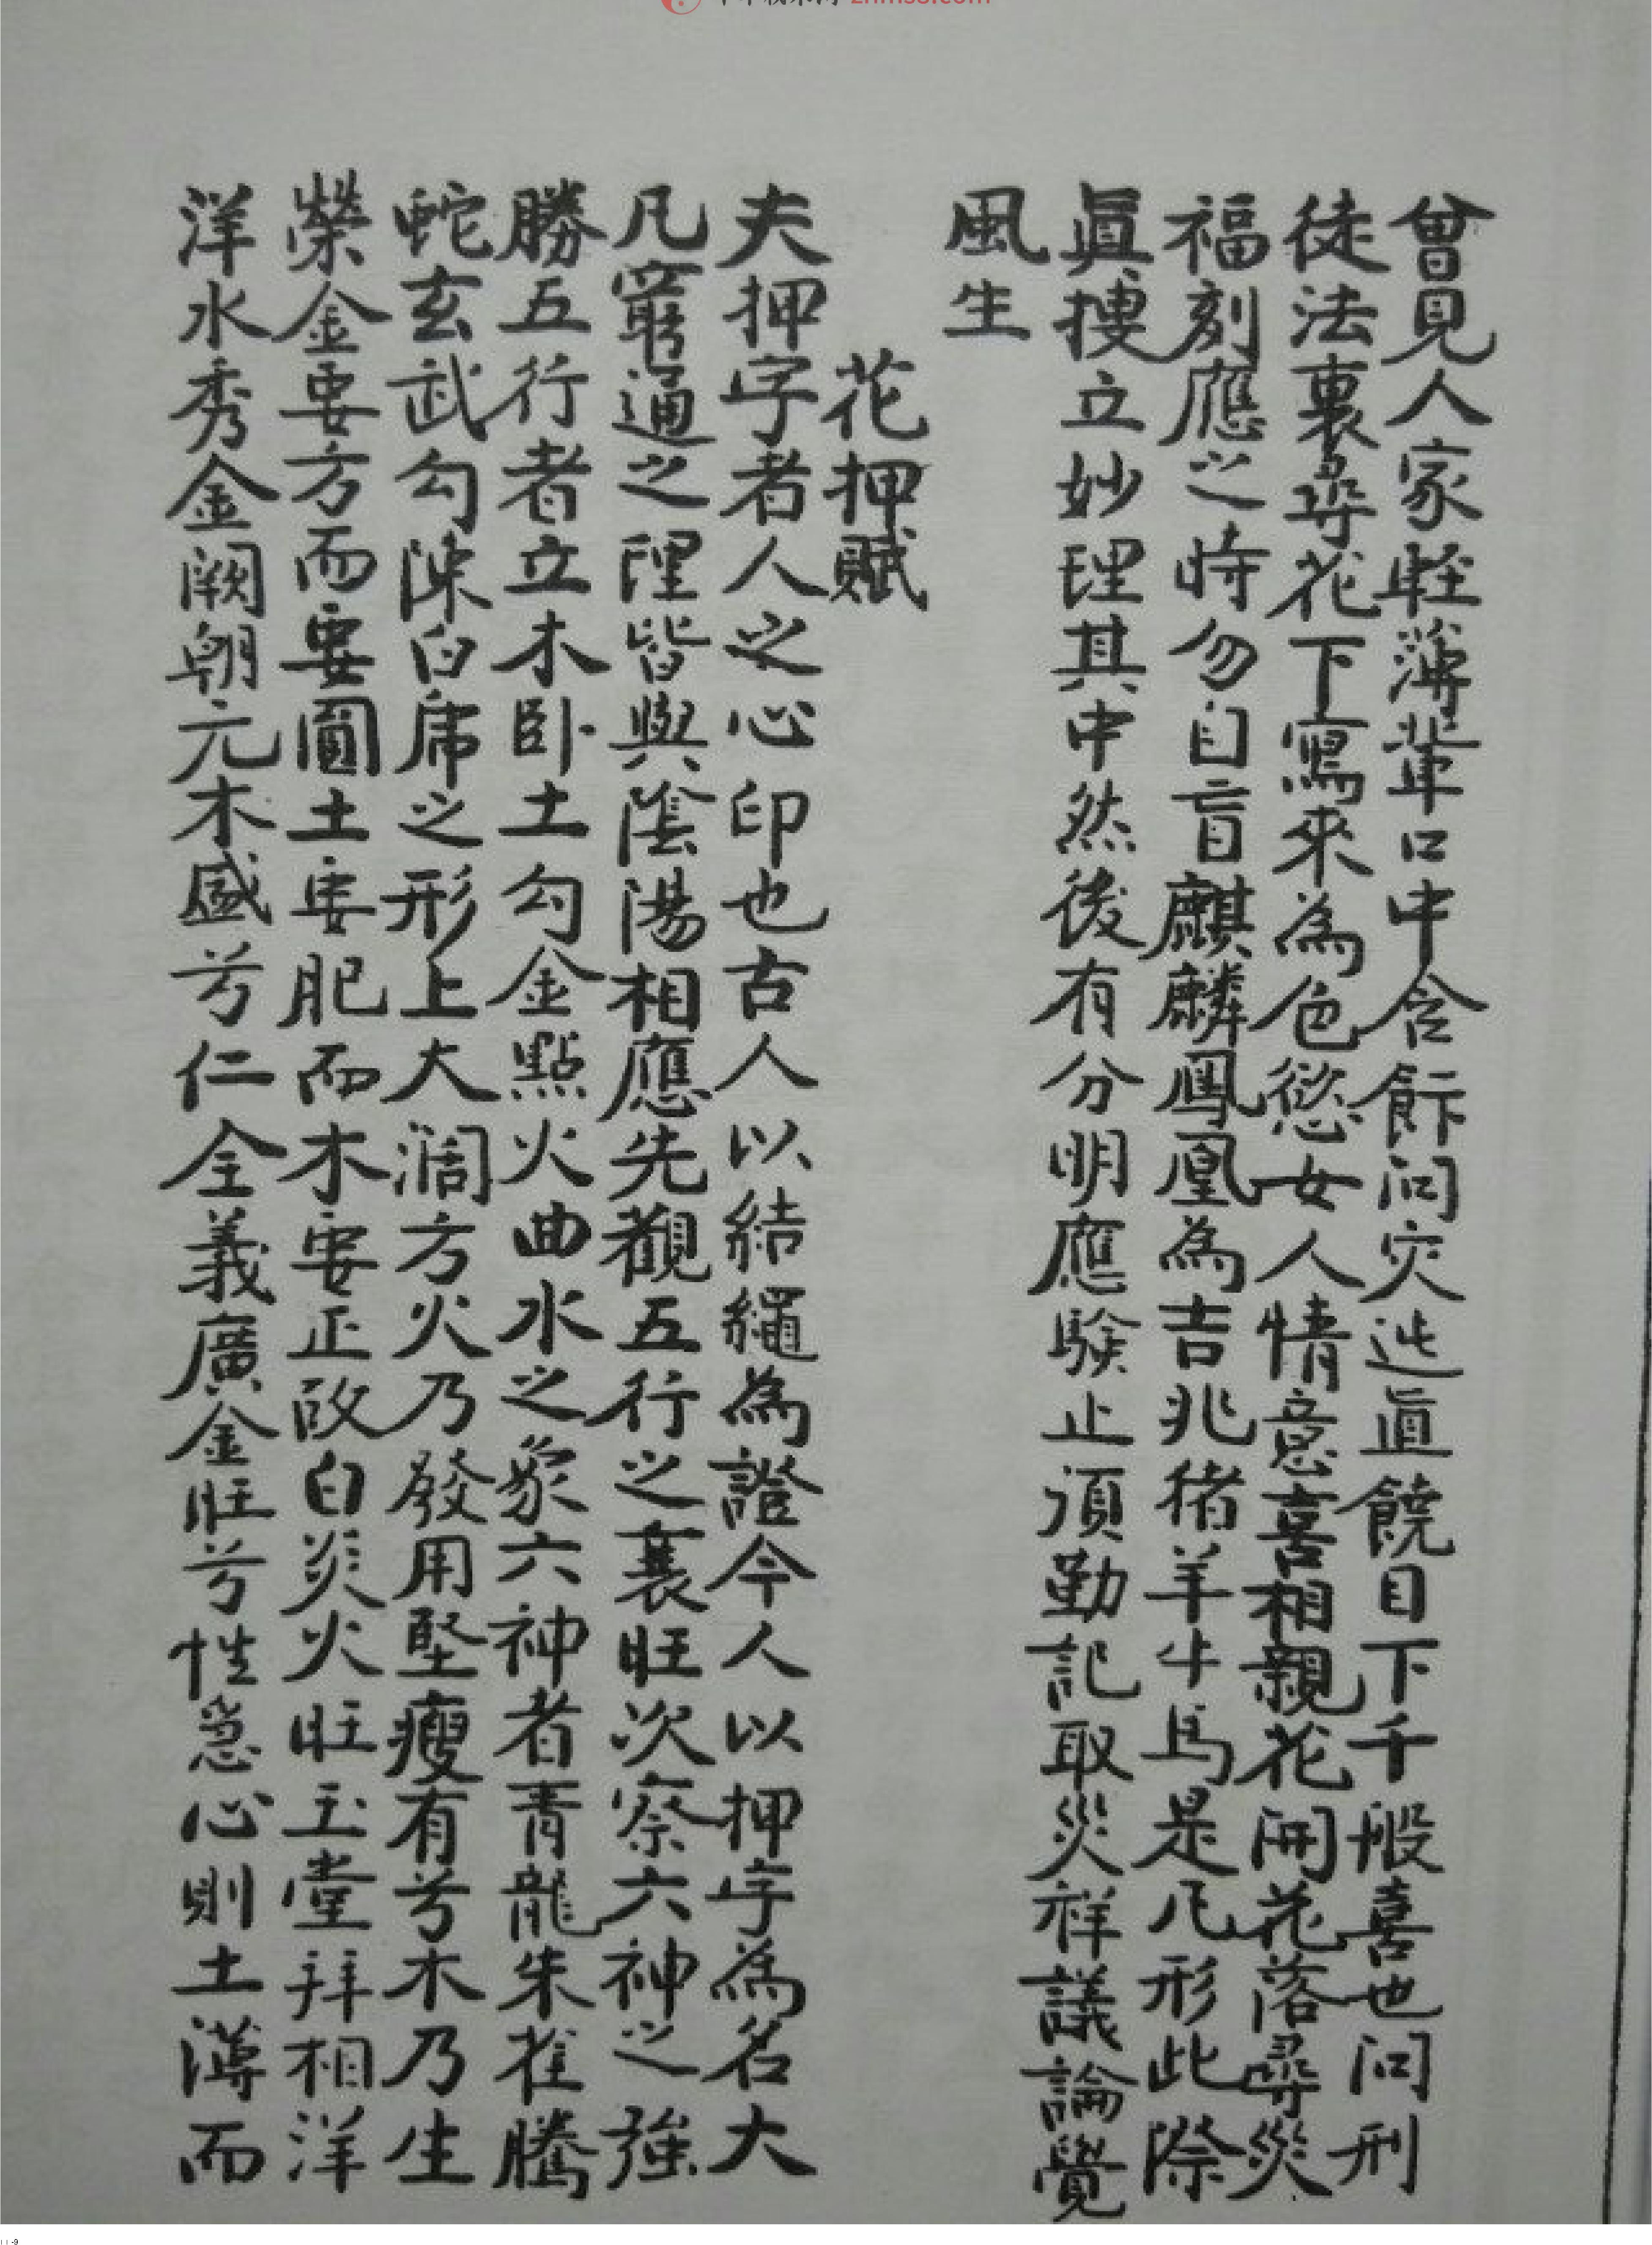 曾見人家輕薄輩口中含飦问灾迍眞饒目下千般喜也问刑
徒法裏尋花下寫來為色慾女人情意喜相親花開花落尋災
福刻應之時勿自盲麒麟鳳凰為吉兆猪羊牛馬是凡形此際
眞摟立妙理其中然後有分明應験止湏勤記取災祥議論覺
風生
花押賦
夫押字者人之心印也古人以結繩為證今人以押字為名大
凡窮通之理皆與陰陽相應先觀五行之衰旺次察六神之強
勝五行者立木卧土勾金點火曲水之象六神者青龍朱雀騰
蛇玄武勾陳白虎之形上大濶方火乃發用堅瘦有兮木乃生
榮金要方而要圓土要肥而木要正故曰炎火旺玉堂拜相洋
洋水秀金闕朝元木盛兮仁全義廣金旺兮性急心則土薄而